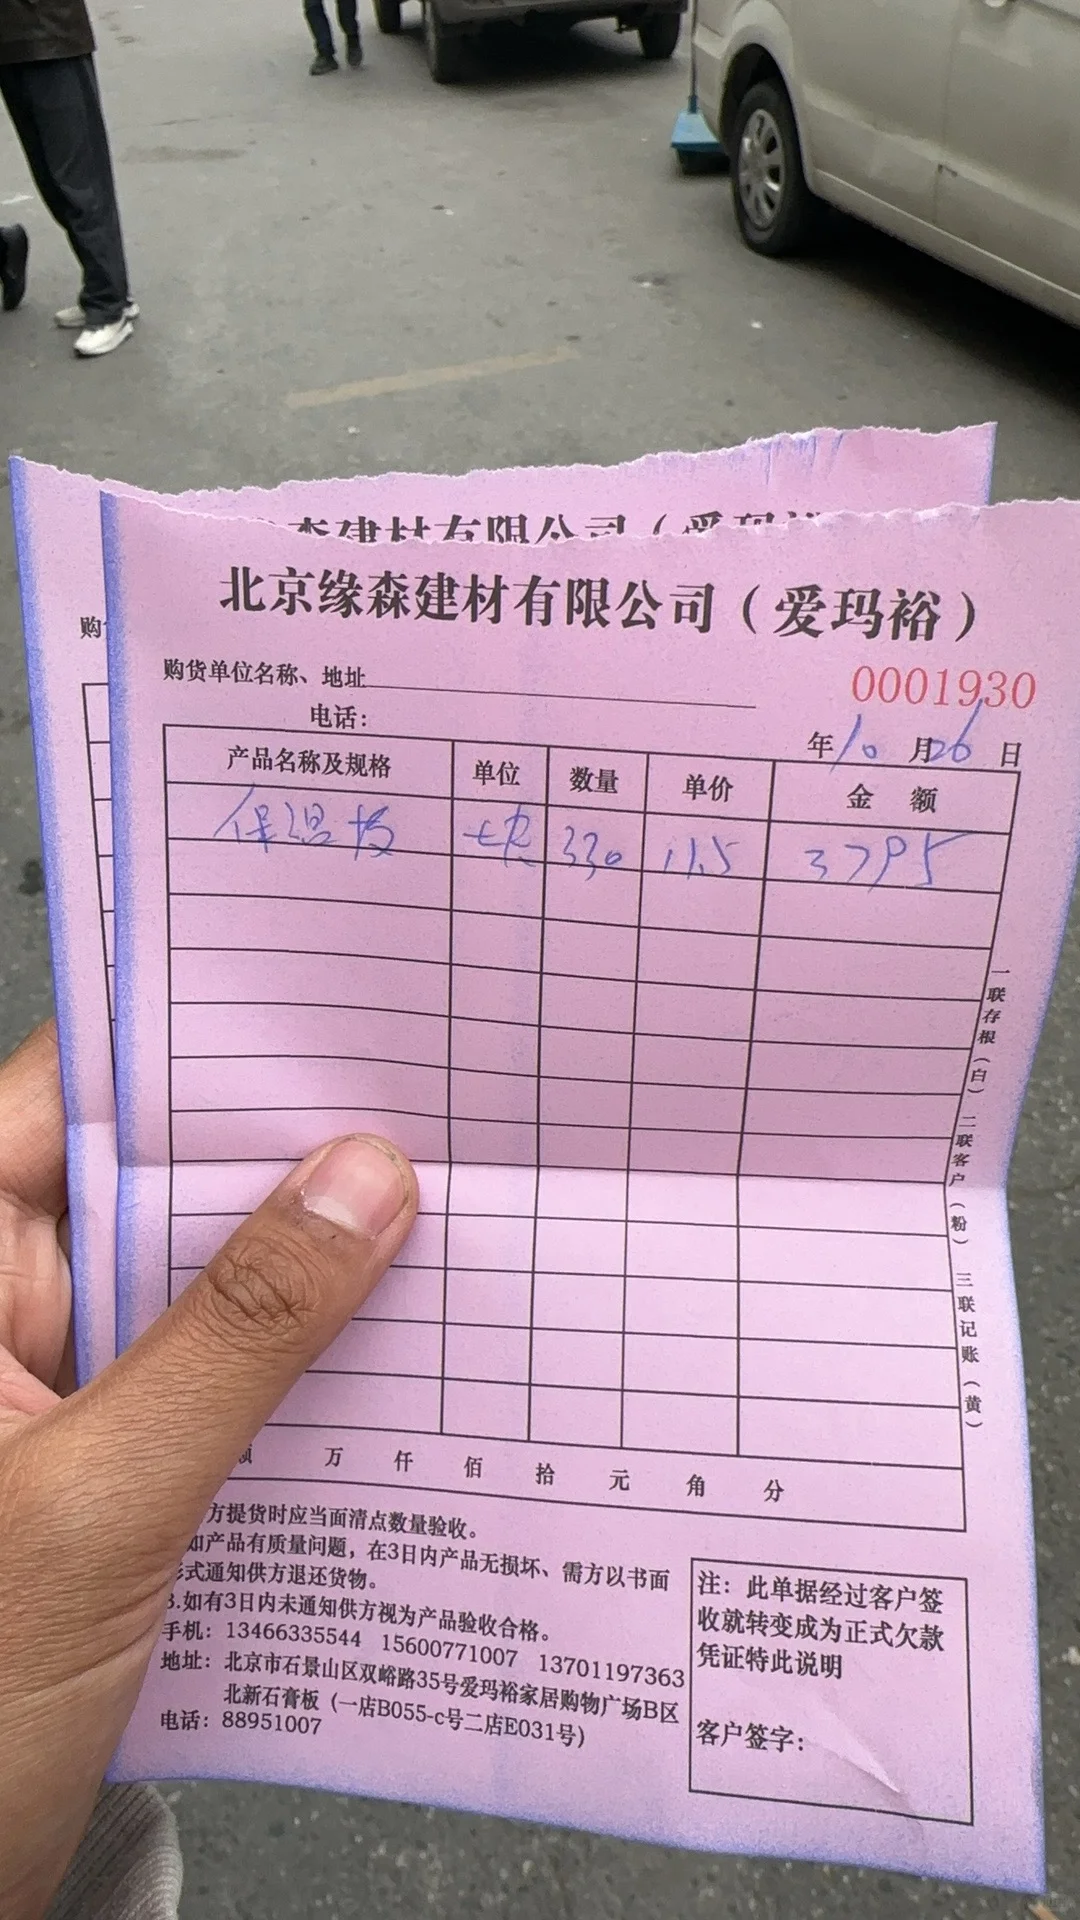 建材有限公司（爱玛裕
购
北京缘森建材有限公司（爱玛裕）
购货单位名称、地址
0001930
电话：
年10月26日
产品名称及规格 单位 数量 单价 金额
保温板 块 330 11.5 3795
一联存根（白） 二联客户（粉） 三联记账（黄）
额 万 仟 佰 拾 元 角 分
方提货时应当面清点数量验收。
如产品有质量问题，在3日内产品无损坏、需方以书面
形式通知供方退还货物。
3.如有3日内未通知供方视为产品验收合格。
手机：13466335544 15600771007 13701197363
地址：北京市石景山区双峪路35号爱玛裕家居购物广场B区
北新石膏板（一店B055-c号二店E031号）
电话：88951007
注：此单据经过客户签
收就转变成为正式欠款
凭证特此说明
客户签字：